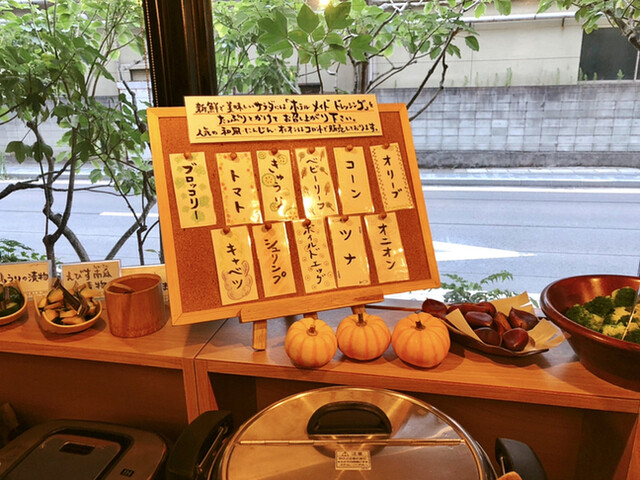 新鮮で美味しいサラダには ホームメイド ドレッシングを
たっぷりとかけて お召し上がり下さい。
人気の 和風・にんじん・
販売しております。
ブロッコリー
トマト
きゅうり
ベビーリーフ
コーン
オリーブ
キャベツ
シュリンプ
ボイルドエッグ
ツナ
オニオン
うりの漬物
えびす南瓜